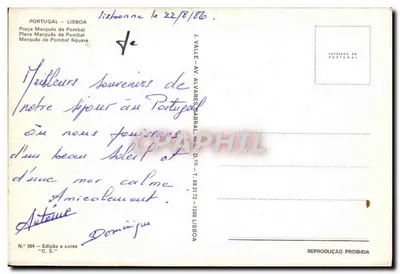 PORTUGAL - LISBOA
Praça Marquês de Pombal
Place Marquês de Pombal
Marquês de Pombal Square
Lisbonne le 22/8/86.
Meilleurs souvenirs de
notre séjour au Portugal
où nous jouissons
d'un beau soleil et
d'une mer calme
Amicalement.
Antoine
Dominique
N.º 364 - Edição a cores
"C. S."
J. VALLE - AV. ALVARES CABRAL,
1200 LISBOA
IMPRESSO EM
PORTUGAL
REPRODUÇÃO PROIBIDA
DELCAMPAPHIL